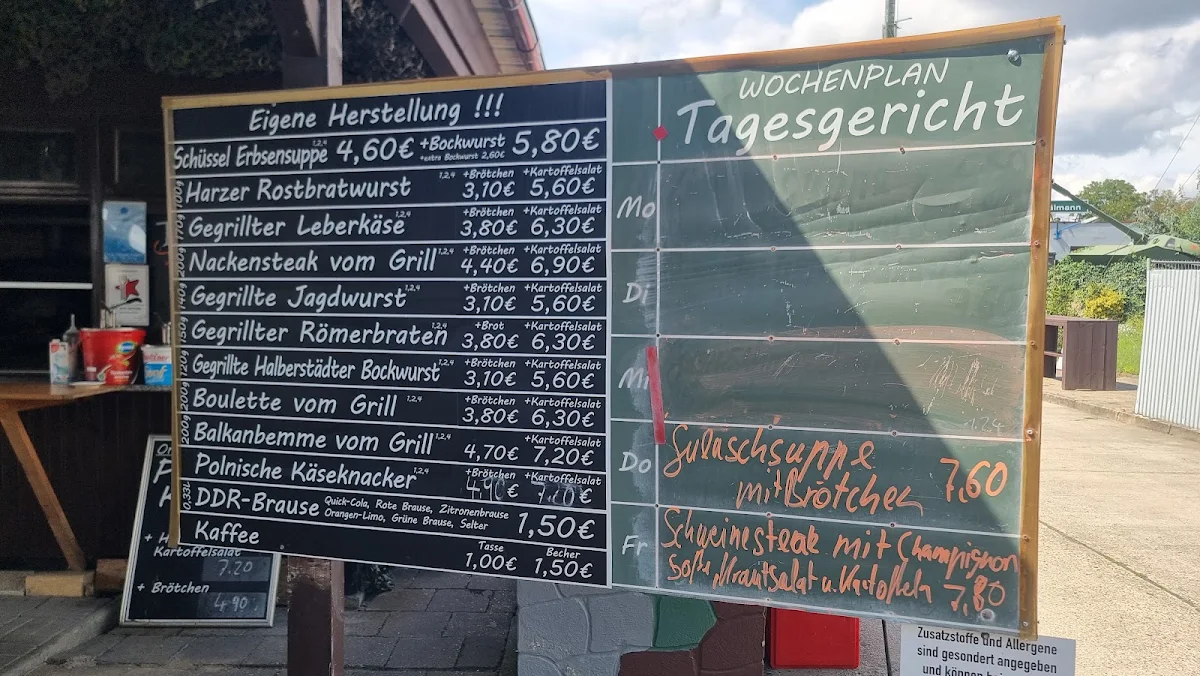 Eigene Herstellung !!!
Schüssel Erbsensuppe 1,2,4 4,60€ +Bockwurst 5,80€
+extra Bockwurst 2,60€
+Brötchen +Kartoffelsalat
Harzer Rostbratwurst 1,2,4 3,10€ 5,60€
+Brötchen +Kartoffelsalat
Gegrillter Leberkäse 1,2,4 3,80€ 6,30€
+Brötchen +Kartoffelsalat
200g Nackensteak vom Grill 1,2,4 4,40€ 6,90€
+Brötchen +Kartoffelsalat
140g Gegrillte Jagdwurst 1,2,4 3,10€ 5,60€
+Brot +Kartoffelsalat
150g Gegrillter Römerbraten 1,2,4 3,80€ 6,30€
+Brötchen +Kartoffelsalat
120g Gegrillte Halberstädter Bockwurst 1,2,4 3,10€ 5,60€
+Brötchen +Kartoffelsalat
200g Boulette vom Grill 1,2,4 3,80€ 6,30€
+Kartoffelsalat
200g Balkanbemme vom Grill 1,2,4 4,70€ 7,20€
+Brötchen +Kartoffelsalat
Polnische Käseknacker 1,2,4 4,90€ 7,20€
0,33l DDR-Brause Quick-Cola, Rote Brause, Zitronenbrause
Orangen-Limo, Grüne Brause, Selter 1,50€
Tasse Becher
Kaffee 1,00€ 1,50€
WOCHENPLAN
Tagesgericht
Mo
Di
Mi
Do Gulaschsuppe
mit Brötchen 7,60
Fr Schweinesteak mit Champignon
Soße, Krautsalat u. Kartoffeln 7,80
Kartoffelsalat
7.20
+ Brötchen
4.90
Zusatzstoffe und Allergene
sind gesondert angegeben